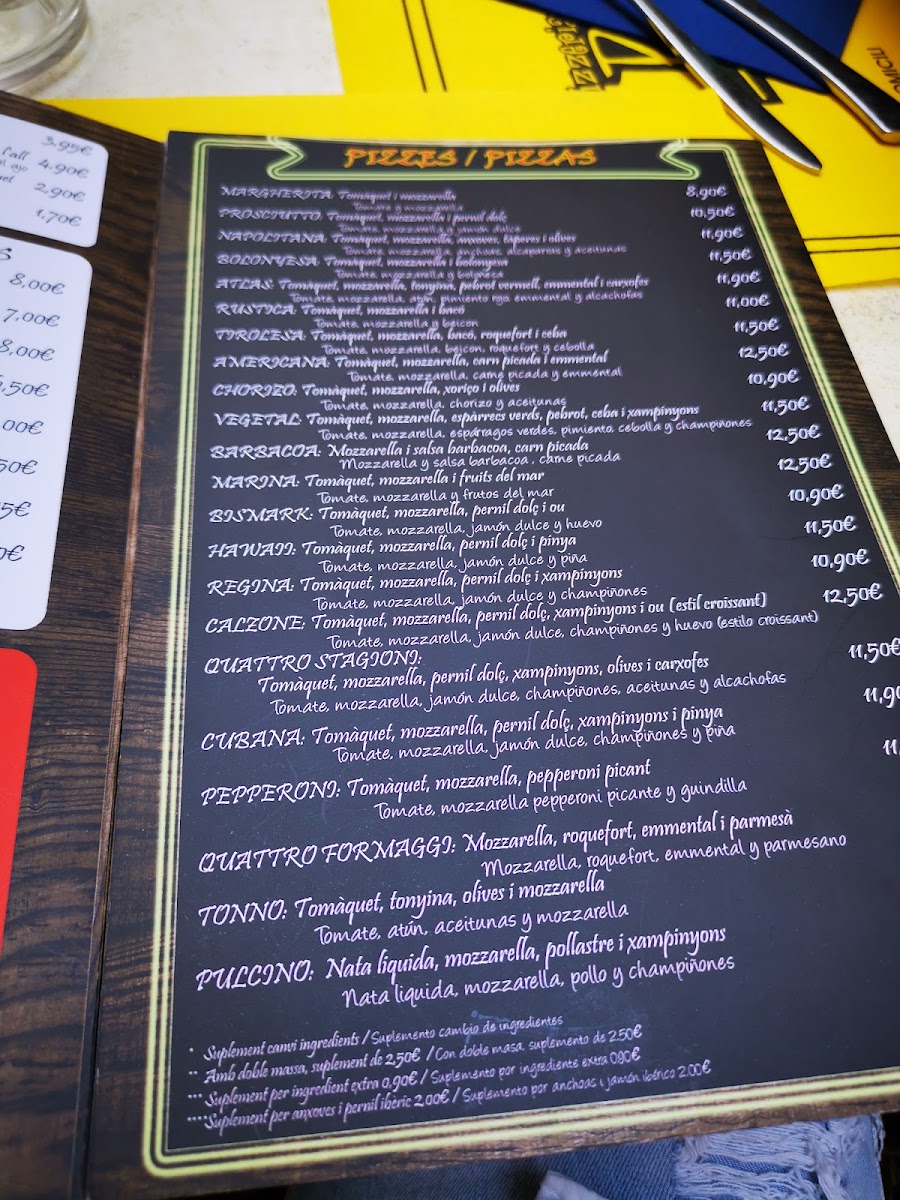 3,95€
4.90€
2.90€
1.70€
8,00€
7,00€
8,00€
,50€
00€
50€
5€
0€
PIZZES / PIZZAS
MARGHERITA: Tomàquet i mozzarella 8,90€
Tomate y mozzarella
PROSCIUTTO: Tomàquet, mozzarella i pernil dolç 10,50€
Tomate, mozzarella y jamón dulce
NAPOLITANA: Tomàquet, mozzarella, anxoves, tàperes i olives 11,90€
Tomate, mozzarella, anchoas, alcaparras y aceitunas
BOLONYESA: Tomàquet, mozzarella i bolonyesa 11,50€
Tomate, mozzarella y boloñesa
ATLAS: Tomàquet, mozzarella, tonyina, pebrot vermell, emmental i carxofes 11,90€
Tomate, mozzarella, atún, pimiento rojo emmental y alcachofas
RUSTICA: Tomàquet, mozzarella i bacó 11,00€
Tomate, mozzarella y beicon
TIROLESA: Tomàquet, mozzarella, bacó, roquefort i ceba 11,50€
Tomate, mozzarella, beicon, roquefort y cebolla
AMERICANA: Tomàquet, mozzarella, carn picada i emmental 12,50€
Tomate, mozzarella, carne picada y emmental
CHORIZO: Tomàquet, mozzarella, xoriço i olives 10,90€
Tomate, mozzarella, chorizo y aceitunas
VEGETAL: Tomàquet, mozzarella, espàrrecs verds, pebrot, ceba i xampinyons 11,50€
Tomate, mozzarella, espárragos verdes, pimiento, cebolla y champiñones
BARBACOA: Mozzarella i salsa barbacoa, carn picada 12,50€
Mozzarella y salsa barbacoa . carne picada
MARINA: Tomàquet, mozzarella i fruits del mar 12,50€
Tomate, mozzarella y frutos del mar
BISMARK: Tomàquet, mozzarella, pernil dolç i ou 10,90€
Tomate, mozzarella, jamón dulce y huevo
HAWAII: Tomàquet, mozzarella, pernil dolç i pinya 11,50€
Tomate, mozzarella, jamón dulce y piña
REGINA: Tomàquet, mozzarella, pernil dolç i xampinyons 10,90€
Tomate, mozzarella, jamón dulce y champiñones
CALZONE: Tomàquet, mozzarella, pernil dolç, xampinyons i ou (estil croissant) 12,50€
Tomate, mozzarella, jamón dulce, champiñones y huevo (estilo croissant)
QUATTRO STAGIONI:
Tomàquet, mozzarella, pernil dolç, xampinyons, olives i carxofes 11,50€
Tomate, mozzarella, jamón dulce, champiñones, aceitunas y alcachofas
CUBANA: Tomàquet, mozzarella, pernil dolç, xampinyons i pinya 11,90
Tomate, mozzarella, jamón dulce, champiñones y piña
PEPPERONI: Tomàquet, mozzarella, pepperoni picant 11,
Tomate, mozzarella pepperoni picante y guindilla
QUATTRO FORMAGGI: Mozzarella, roquefort, emmental i parmesà
Mozzarella, roquefort, emmental y parmesano
TONNO: Tomàquet, tonyina, olives i mozzarella
Tomate, atún, aceitunas y mozzarella
PULCINO: Nata liquida, mozzarella, pollastre i xampinyons
Nata liquida, mozzarella, pollo y champiñones
* Suplement canvi ingredients / Suplemento cambio de ingredientes
** Amb doble massa, suplement de 2,50€ / Con doble masa, suplemento de 2.50€
*** Suplement per ingredient extra 0,90€ / Suplemento por ingrediente extra 0.90€
**** Suplement per anxoves i pernil ibèric 2,00€ / Suplemento por anchoas i jamón ibérico 2.00€